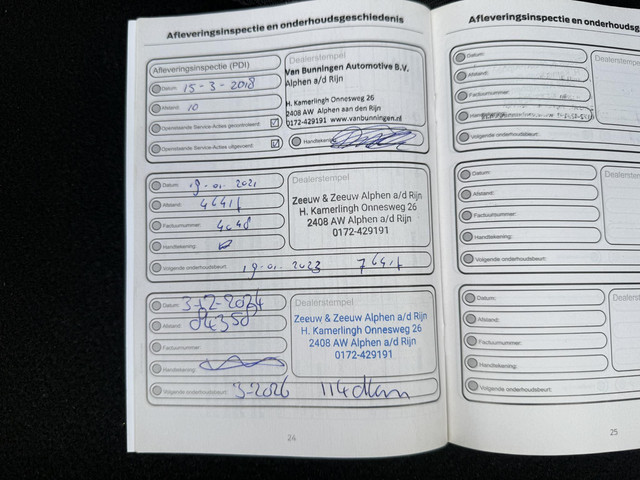 Afleveringsinspectie en onderhoudsgeschiedenis
Afleveringsinspectie (PDI)
Datum: 15-3-2018
Afstand: 10
Openstaande Service-Acties gecontroleerd:
Openstaande Service-Acties uitgevoerd:
Dealerstempel
Van Bunningen Automotive B.V.
Alphen a/d Rijn
H. Kamerlingh Onnesweg 26
2408 AW Alphen aan den Rijn
0172-429191 www.vanbunningen.nl
Handtekening:
Datum: 19-01-2021
Afstand:
Factuurnummer: 4048
Handtekening:
Volgende onderhoudsbeurt: 19-01-2023
Dealerstempel
Zeeuw & Zeeuw Alphen a/d Rijn
H. Kamerlingh Onnesweg 26
2408 AW Alphen a/d Rijn
0172-429191
Datum: 3-12-2024
Afstand: 84358
Factuurnummer:
Handtekening:
Volgende onderhoudsbeurt: 3-2026 114dkm
Dealerstempel
Zeeuw & Zeeuw Alphen a/d Rijn
H. Kamerlingh Onnesweg 26
2408 AW Alphen a/d Rijn
0172-429191
24
Afleveringsinspectie en onderhoudsg
Datum:
Afstand:
Factuurnummer:
Volgende onderhoudsbeurt:
Dealerste
Datum:
Afstand:
Factuurnummer:
Handtekening:
Volgende onderhoudsbeurt:
Dealerstem
Datum:
Afstand:
Factuurnummer:
Handtekening:
Volgende onderhoudsbeurt:
Dealerst
25